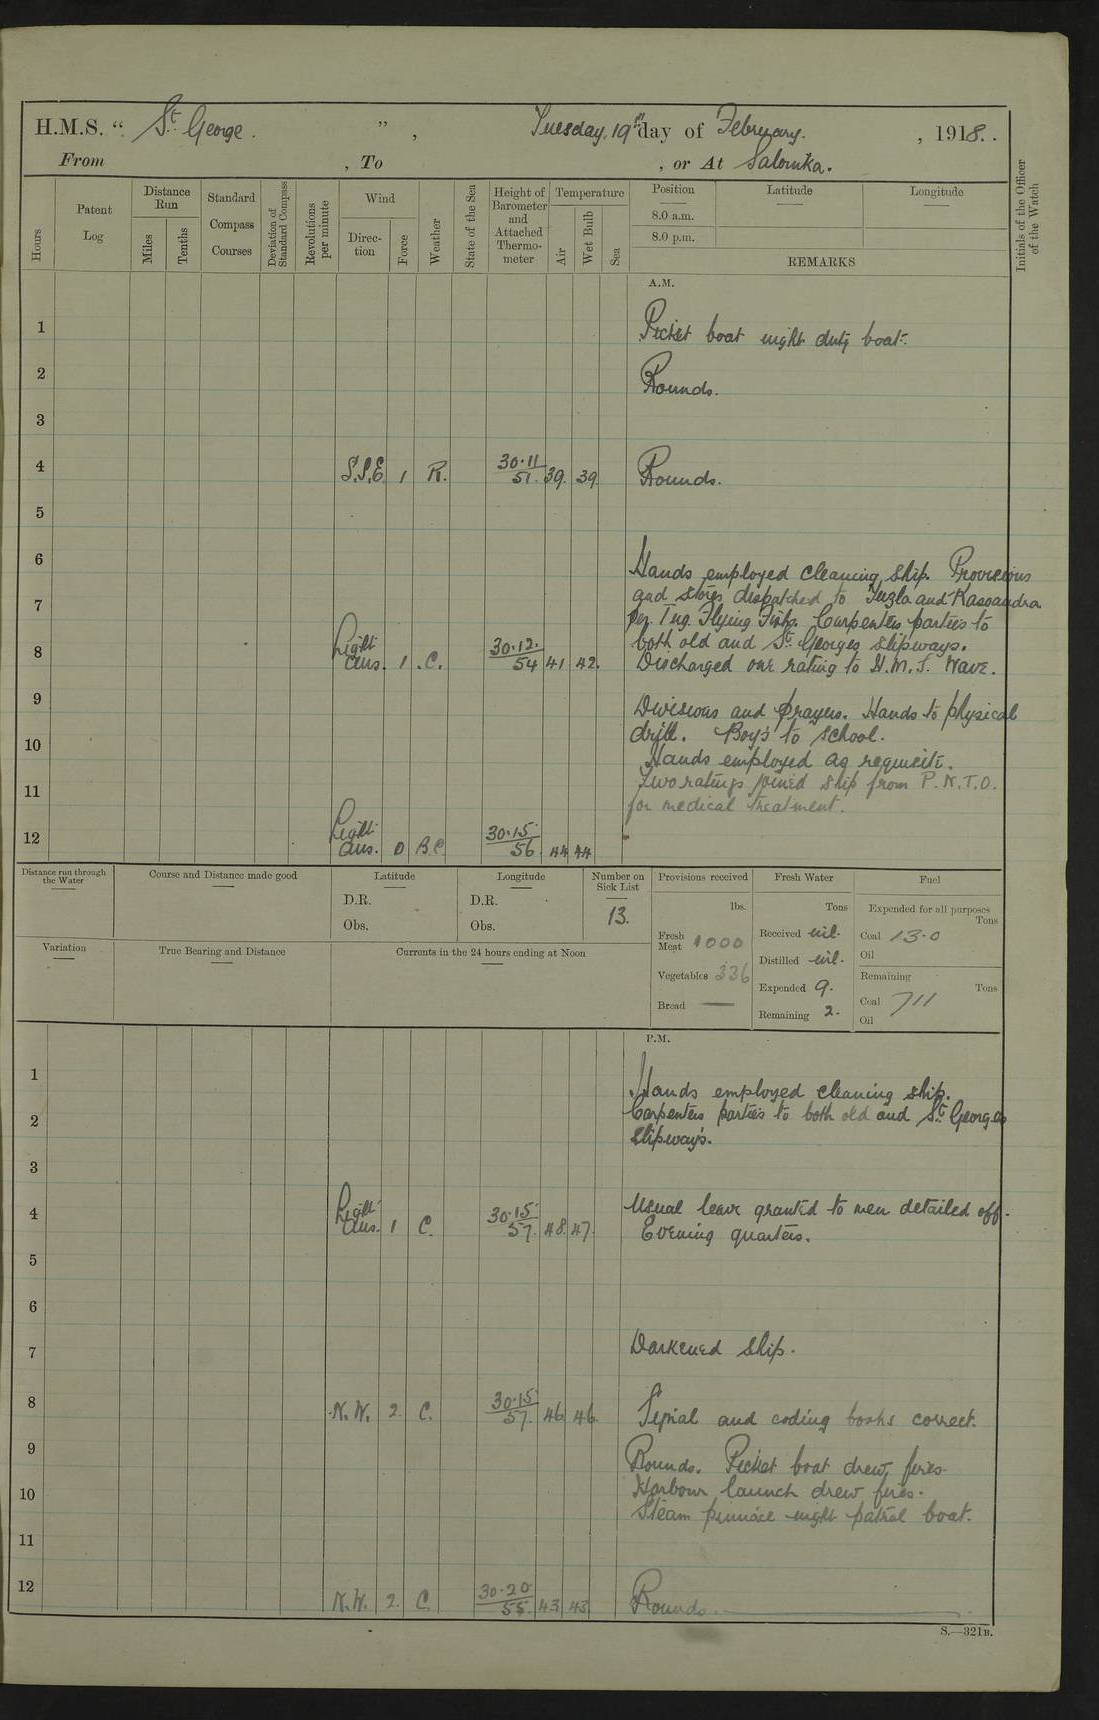 H.M.S. " St. George. ", Tuesday, 19th day of February. , 1918.
From , To , or At Salonika.
Hours
Patent Log
Distance Run
Miles
Tenths
Standard Compass Courses
Deviation of Standard Compass
Revolutions per minute
Wind
Direction
Force
Weather
State of the Sea
Height of Barometer and Attached Thermometer
Temperature
Air
Wet Bulb
Sea
Position
8.0 a.m.
8.0 p.m.
Latitude
Longitude
REMARKS
Initials of the Officer of the Watch
A.M.
1 Picket boat night duty boat.
2 Rounds.
3
4 S.S.E. 1 R. 30.11 51. 39. 39 Rounds.
5
6 Hands employed cleaning ship. Provisions
and stores dispatched to Tuzla and Kassandra
7 per Tug Flying Fish. Carpenters parties to
both old and St. Georges slipways.
8 Light Aus. 1 .C. 30.12. 54 41 42. Discharged one rating to H.M.S. Wave.
9 Divisions and prayers. Hands to physical
drill. Boys to school.
10 Hands employed as requisite.
Two ratings joined ship from P.N.T.O.
11 for medical treatment.
12 Light Aus. 0 B.C. 30.15. 56. 44 44
Distance run through the Water
Course and Distance made good
Latitude
D.R.
Obs.
Longitude
D.R.
Obs.
Number on Sick List
13.
Provisions received
lbs.
Fresh Meat 1000
Vegetables 336
Bread —
Fresh Water
Tons
Received nil.
Distilled nil.
Expended 9.
Remaining 2.
Fuel
Expended for all purposes
Tons
Coal 13.0
Oil
Remaining
Tons
Coal 711
Oil
Variation
True Bearing and Distance
Currents in the 24 hours ending at Noon
P.M.
1 Hands employed cleaning ship.
Carpenters parties to both old and St. Georges
2 slipways.
3
4 Light Aus. 1 C. 30.15. 57. 48. 47. Usual leave granted to men detailed off.
Evening quarters.
5
6
7 Darkened ship.
8 N.W. 2. C. 30.15 57. 46 46 Serial and coding books correct.
9 Rounds. Picket boat drew fires.
10 Harbour launch drew fires.
Steam pinnace night patrol boat.
11
12 N.W. 2. C. 30.20 55. 43 43 Rounds.
S.—321B.